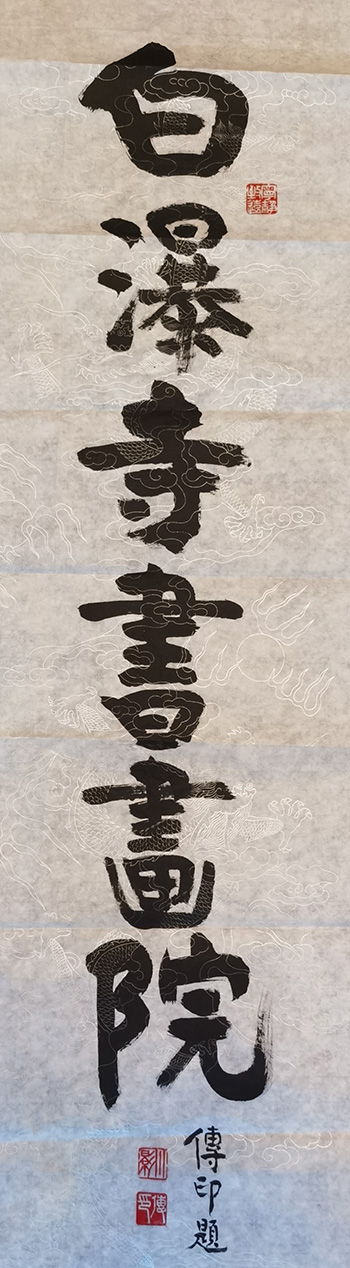 白瀑寺書畫院
傳印題